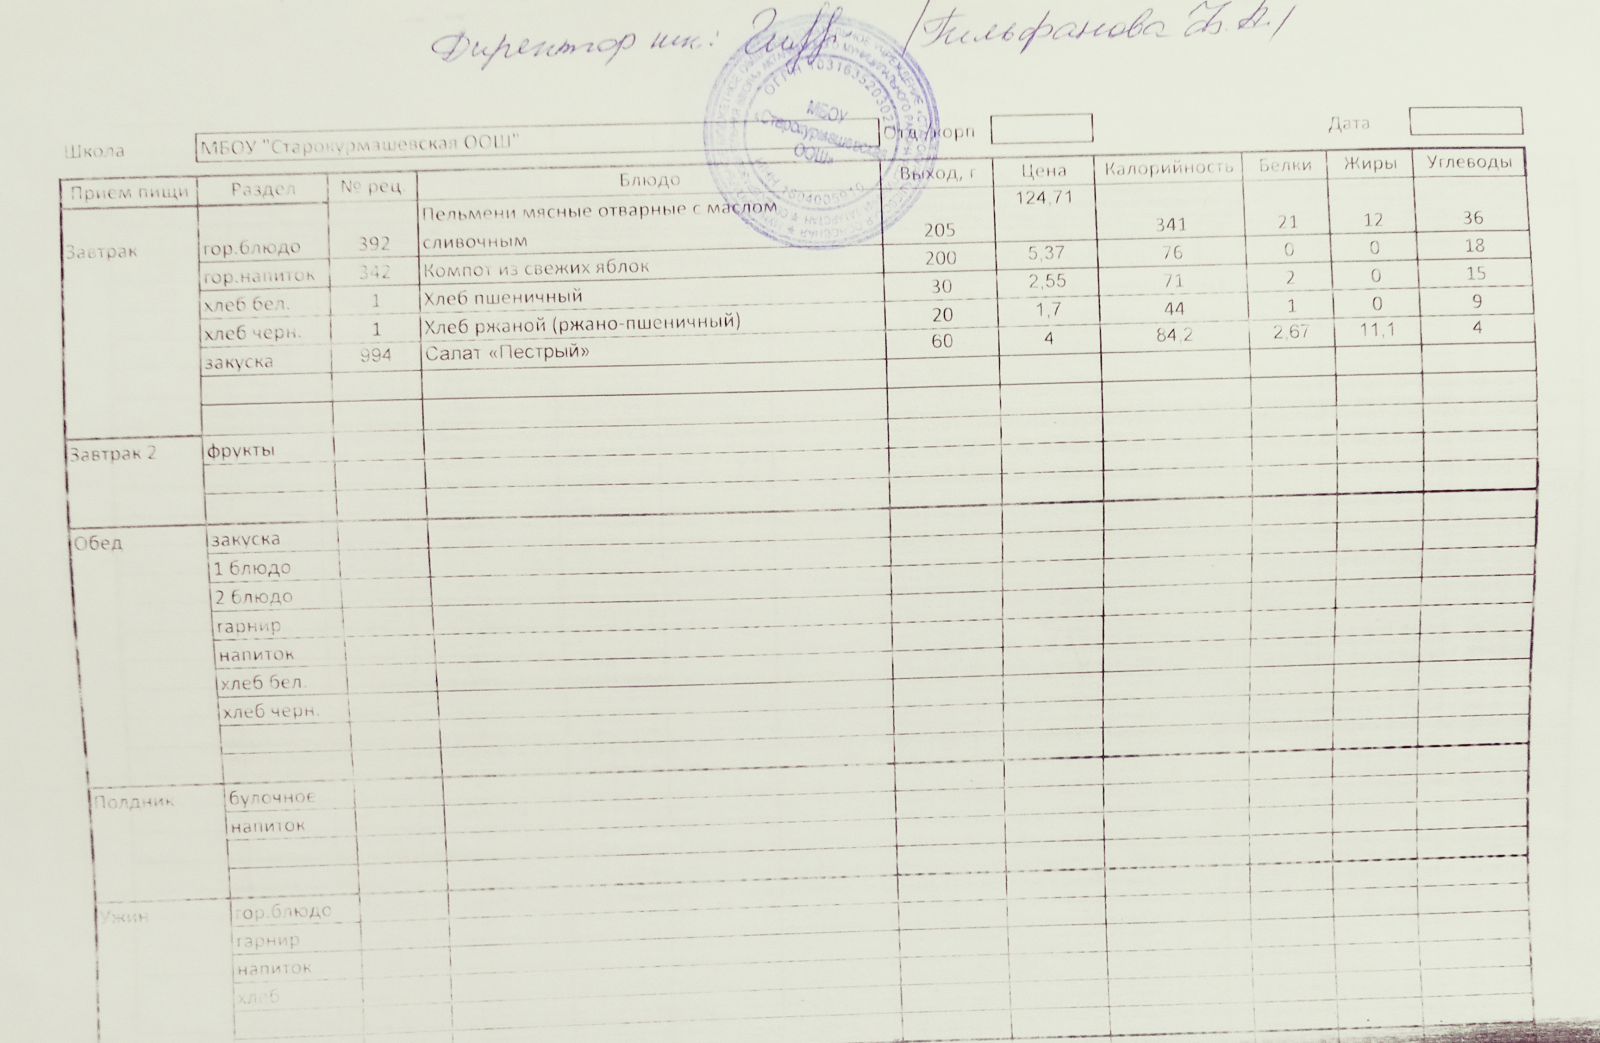 Директор шк: /Гильфанова
Школа МБОУ "Старокурмашевская ООШ" Отд./корп Дата
Прием пищи Раздел № рец. Блюдо Выход, г Цена Калорийность Белки Жиры Углеводы
Завтрак гор.блюдо 392 Пельмени мясные отварные с маслом сливочным 205 124,71 341 21 12 36
гор.напиток 342 Компот из свежих яблок 200 5,37 76 0 0 18
хлеб бел. 1 Хлеб пшеничный 30 2,55 71 2 0 15
хлеб черн. 1 Хлеб ржаной (ржано-пшеничный) 20 1,7 44 1 0 9
закуска 994 Салат «Пестрый» 60 4 84,2 2,67 11,1 4
Завтрак 2 фрукты
Обед закуска
1 блюдо
2 блюдо
гарнир
напиток
хлеб бел.
хлеб черн.
Полдник булочное
напиток
Ужин гор.блюдо
гарнир
напиток
хлеб
МБОУ
«Старокурмашевская
ООШ»